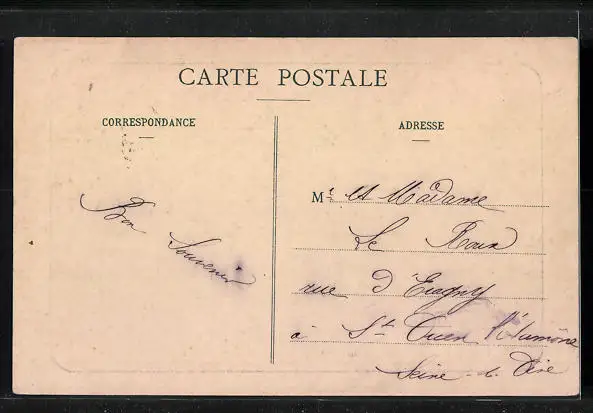 CARTE POSTALE
CORRESPONDANCE
Bon Souvenir
ADRESSE
Mr et Madame
Le Roux
rue d'Eragny
à St Ouen l'Aumône
Seine & Oise